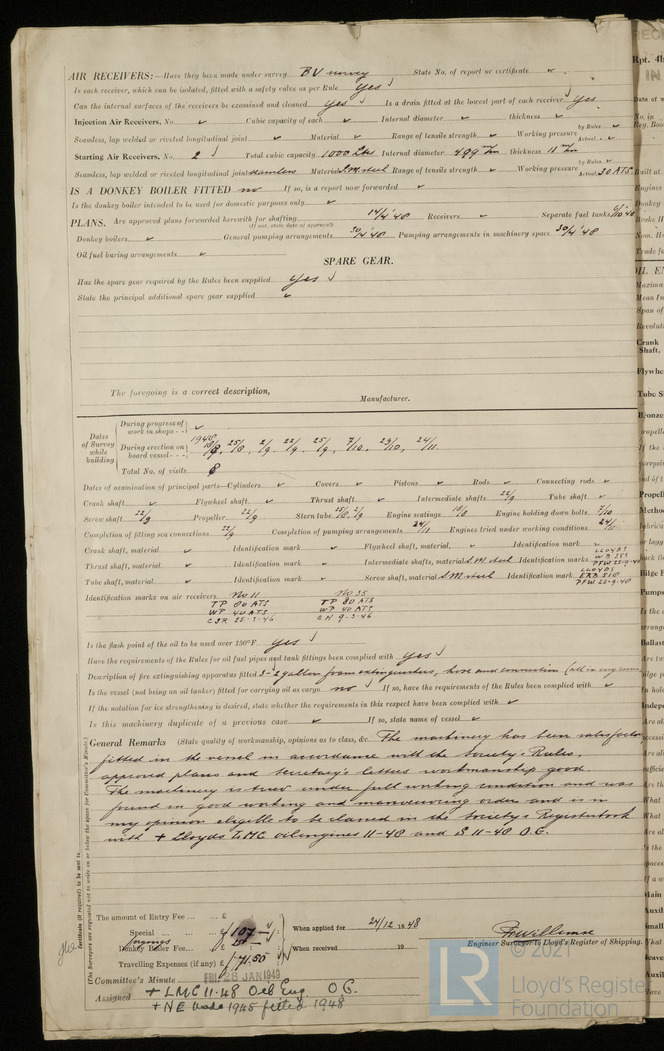 AIR RECEIVERS:— Have they been made under survey BV survey State No. of report or certificate
Is each receiver, which can be isolated, fitted with a safety valve as per Rule yes
Can the internal surfaces of the receivers be examined and cleaned yes Is a drain fitted at the lowest part of each receiver yes
Injection Air Receivers, No. Cubic capacity of each Internal diameter thickness
Seamless, lap welded or riveted longitudinal joint Material Range of tensile strength Working pressure by Rules Actual
Starting Air Receivers, No. 2 Total cubic capacity 1000 Ltrs Internal diameter 499 m/m thickness 11 m/m
Seamless, lap welded or riveted longitudinal joint seamless Material S.M. steel Range of tensile strength Working pressure by Rules Actual 30 ATS
IS A DONKEY BOILER FITTED no If so, is a report now forwarded
Is the donkey boiler intended to be used for domestic purposes only
PLANS. Are approved plans forwarded herewith for shafting 14/4 '48 Receivers Separate fuel tanks 6/10 '48
(If not, state date of approval)
Donkey boilers General pumping arrangements 30/4 '48 Pumping arrangements in machinery space 30/4 '48
Oil fuel buring arrangements
SPARE GEAR.
Has the spare gear required by the Rules been supplied yes
State the principal additional spare gear supplied
The foregoing is a correct description,
Manufacturer.
Dates of Survey while building
During progress of work in shops - -
During erection on board vessel - - 1948 18/8, 25/8, 2/9, 22/9, 25/9, 7/10, 29/10, 24/11
Total No. of visits 8
Dates of examination of principal parts—Cylinders Covers Pistons Rods Connecting rods
Crank shaft Flywheel shaft Thrust shaft Intermediate shafts 22/9 Tube shaft
Screw shaft 22/9 Propeller 22/9 Stern tube 25/8 2/9 Engine seatings 18/8 Engine holding down bolts 7/10
Completion of fitting sea connections 22/9 Completion of pumping arrangements 24/11 Engines tried under working conditions 24/11
Crank shaft, material Identification mark Flywheel shaft, material, Identification mark
Thrust shaft, material Identification mark Intermediate shafts, material S.M. steel Identification marks LLOYDS WB 359 PFW 22-9-48
Tube shaft, material Identification mark Screw shaft, material S.M. steel Identification mark LLOYDS ERB 510 PFW 22-9-48
Identification marks on air receivers No 11 No 35
TP 80 ATS TP 80 ATS
WP 40 ATS WP 40 ATS
CSR 25-3-46 CH 9-3-46
Is the flash point of the oil to be used over 150°F yes
Have the requirements of the Rules for oil fuel pipes and tank fittings been complied with yes
Description of fire extinguishing apparatus fitted 3-2 gallon foam extinguishers, hose and connection (all in eng room
Is the vessel (not being an oil tanker) fitted for carrying oil as cargo no If so, have the requirements of the Rules been complied with
If the notation for ice strengthening is desired, state whether the requirements in this respect have been complied with
Is this machinery duplicate of a previous case If so, state name of vessel
General Remarks (State quality of workmanship, opinions as to class, &c. The machinery has been satisfactor
fitted in the vessel in accordance with the Society's Rules,
approved plans and Secretary's letters workmanship good.
The machinery is tried under full working condition and was
found in good working and manoeuvering order and is in
my opinion eligible to be classed in the Society's Registerbook
with + Lloyds LMC oilengines 11-48 and S 11-48 O.G.
Certificate (if required) to be sent to
(The Surveyors are requested not to write on or below the space for Committee's Minute.)
The amount of Entry Fee ... £
Special ... ... £ 107
Donkey Boiler Fee... £
Travelling Expenses (if any) £ 71.50
When applied for 24/12 1948
When received 19
PWillemse
Engineer Surveyor to Lloyd's Register of Shipping.
Committee's Minute FRI 28 JAN 1949
Assigned + LMC 11.48 Oil Eng O.G.
+ NE made 1945 fitted 1948
© 2021
LR
Lloyd's Register
Foundation
Rpt. 4b